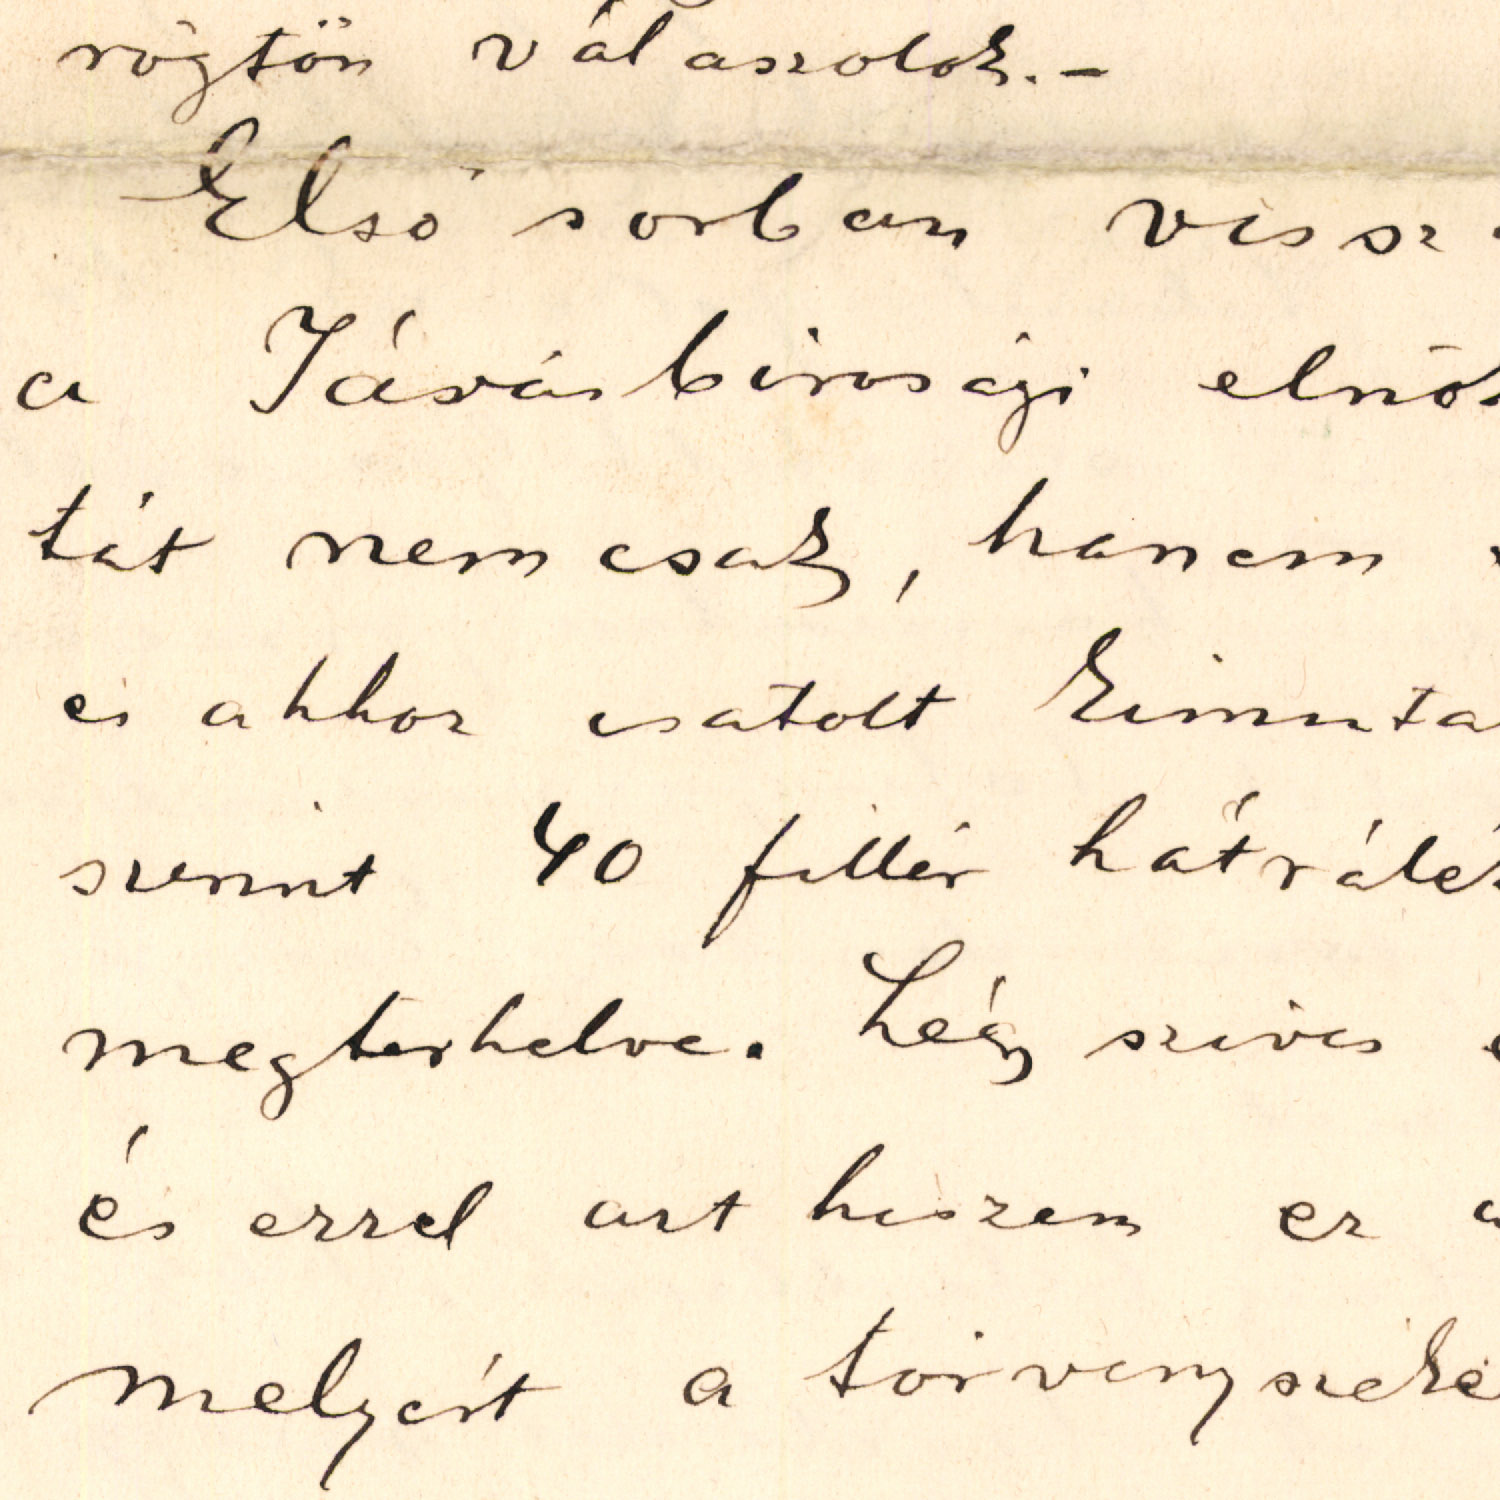 rögtön válaszolok.-
Első sorban vissz
a Járásbirosági elnök
tát nemcsak, hanem
és ahhoz csatolt kimuta
szerint 40 fillér hátrálék
megterhelve. Légy szives
és ezzel azt hiszem ez a
melyért a törvényszéke